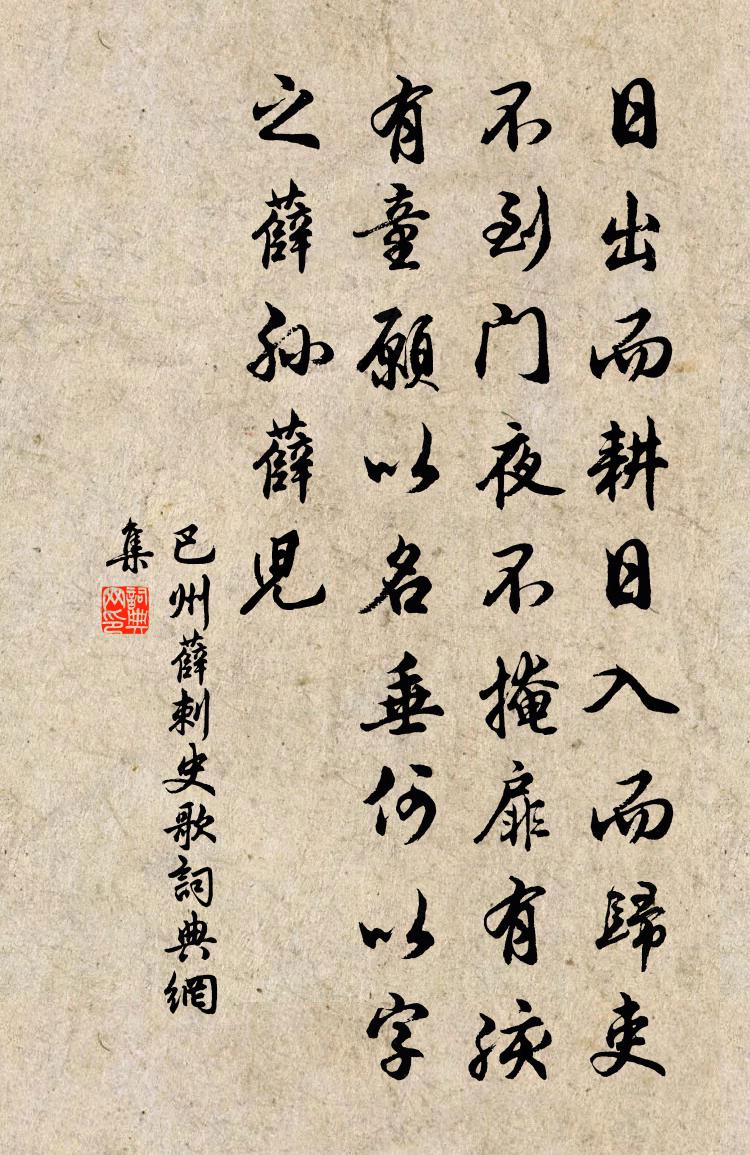 日出而耕日入而歸吏
不到门夜不掩扉有孩
有童願以名垂何以字
之薛孫薛兒
巴州薛刺史歌詞典網
集
詞典
网印